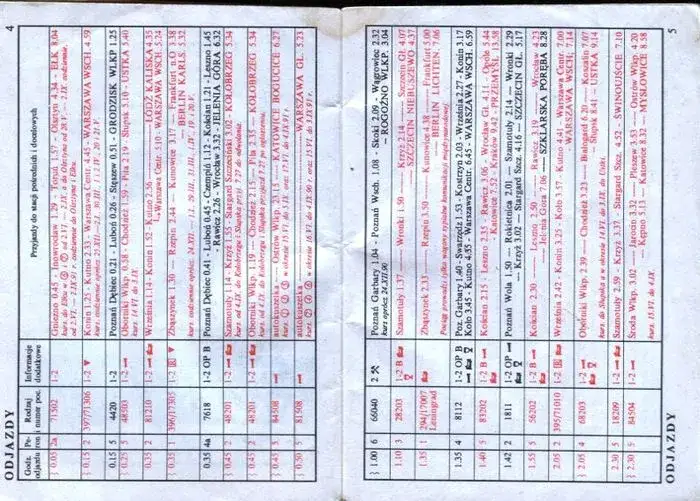 ODJAZDY 4
Godz. odjazdu
Pe-ron
Rodzaj i numer poc.
Informacje dodatkowe
Przyjazdy do stacji pośrednich i docelowych
0.05 2a 71502 1-2 Gniezno 0.45 - Inowrocław 1.29 - Toruń 1.57 - Olsztyn 4.34 - EŁK 8.04
0.15 2 397/71306 1-2 Konin 1.25 - Kutno 2.33 - Warszawa Centr. 4.45 - WARSZAWA WSCH. 4.59
0.15 5 4420 1-2 Poznań Dębiec 0.21 - Luboń 0.26 - Stęszew 0.51 - GRODZISK WLKP 1.25
0.25 5 48503 1-2 Oborniki Wlkp. 0.58 - Chodzież 1.59 - Piła 2.19 - Słupsk 5.10 - USTKA 5.40
kurs 14 VI do 3.IX.
0.35 2 81210 1-2 Września 1.14 - Konin 1.52 - Kutno 2.56 ŁÓDŹ KALISKA 4.35
Warszawa Centr. 5.10 - WARSZAWA WSCH. 5.24
0.35 1 396/17305 1-2 Zbąszynek 1.30 - Rzepin 2.44 - Kunowice 3.17 - Frankfurt n.O 3.38
BERLIN KARLS. 5.32
0.35 4a 7618 1-2 OP B Poznań Dębiec 0.41 - Luboń 0.45 - Czempiń 1.12 - Kościan 1.21 - Leszno 1.45
- Rawicz 2.26 - Wrocław 3.32 - JELENIA GÓRA 6.32
0.45 2 48201 1-2 Szamotuły 1.14 - Krzyż 1.55 - Stargard Szczeciński 3.02 - KOŁOBRZEG 5.34
0.45 5 48201 1-2 Oborniki Wlkp. 1.19 - Chodzież 2.15 - Piła - KOŁOBRZEG 5.34
0.45 5 84508 autokuszetka - Ostrów Wlkp. 23.15 - KATOWICE BOGUCICE 6.27
0.50 5 81508 autokuszetka WARSZAWA GŁ. 5.23
ODJAZDY 5
1.00 6 66040 2 Poznań Garbary 1.04 - Poznań Wsch. 1.08 - Skoki 2.09 - Wągrowiec 2.32
kurs oprócz 24.XII.90 - ROGOŹNO WLKP. 3.04
1.10 3 28203 1-2 B Szamotuły 1.37 - Wronki 1.50 - Krzyż 2.14 - Szczecin Gł. 4.07
SZCZECIN NIEBUSZEWO 4.37
1.35 1 294/17007 Leningrad Zbąszynek 2.33 - Rzepin 3.50 - Kunowice 4.38 - Frankfurt 5.00
BERLIN LICHTEN. 7.06
Pociąg prowadzi tylko wagony sypialne komunikacji międzynarodowej
1.35 4 8112 1-2 OP B Poz. Garbary 1.40 - Swarzędz 1.53 - Kostrzyn 2.03 - Września 2.27 - Konin 3.17
Koło 3.45 - Kutno 4.55 - Warszawa Centr. 6.45 - WARSZAWA WSCH. 6.59
1.40 5 83202 1-2 B Kościan 2.15 - Leszno 2.35 - Rawicz 3.06 - Wrocław Gł. 4.11 - Opole 5.44
Katowice 7.52 - Kraków 9.42 - PRZEMYŚL 13.58
1.42 2 1811 1-2 OP Poznań Wola 1.50 - Rokietnica 2.01 - Szamotuły 2.14 - Wronki 2.29
- Krzyż 3.02 - Stargard Szcz. 4.16 - SZCZECIN GŁ. 5.17
1.55 5 56202 1-2 B Kościan 2.30 - Leszno 2.50 - Rawicz 3.19 - Wrocław 4.23
- Jelenia Góra 7.06 - SZKLARSKA PORĘBA 8.28
2.05 2 395/71010 1-2 Września 2.42 - Konin 3.25 - Koło 3.57 - Kutno 4.41 - Warszawa Centr. 7.00
WARSZAWA WSCH. 7.14
2.05 4 68203 1-2 Oborniki Wlkp. 2.39 - Chodzież 3.23 - Białogard 6.20 - Koszalin 7.07
- Słupsk 8.41 - USTKA 9.14
kurs. do Słupska a w okresie 14 VI do 3.IX do Ustki.
2.30 5 18209 1-2 Szamotuły 2.59 - Krzyż 3.37 - Stargard Szcz. 4.52 - ŚWINOUJŚCIE 7.10
2.30 5 84504 1-2 Środa Wlkp. 3.02 - Jarocin 3.32 - Pleszew 3.53 - Ostrów Wlkp. 4.20
Kępno 5.13 - Katowice 3.32 - MYSŁOWICE 8.58
kurs. 15.VI. do 4.IX